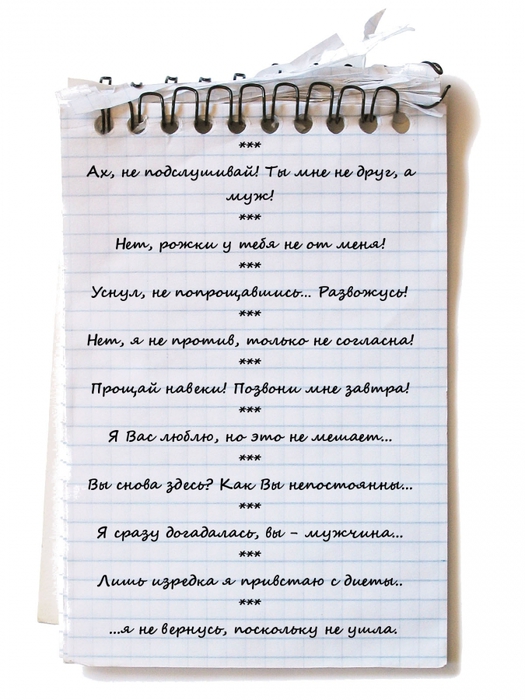 ***
Ах, не подслушивай! Ты мне не друг, а
муж!
***
Нет, рожки у тебя не от меня!
***
Уснул, не попрощавшись... Развожусь!
***
Нет, я не против, только не согласна!
***
Прощай навеки! Позвони мне завтра!
***
Я Вас люблю, но это не мешает...
***
Вы снова здесь? Как Вы непостоянны...
***
Я сразу догадалась, вы - мужчина...
***
Лишь изредка я привстаю с диеты..
***
...я не вернусь, поскольку не ушла.